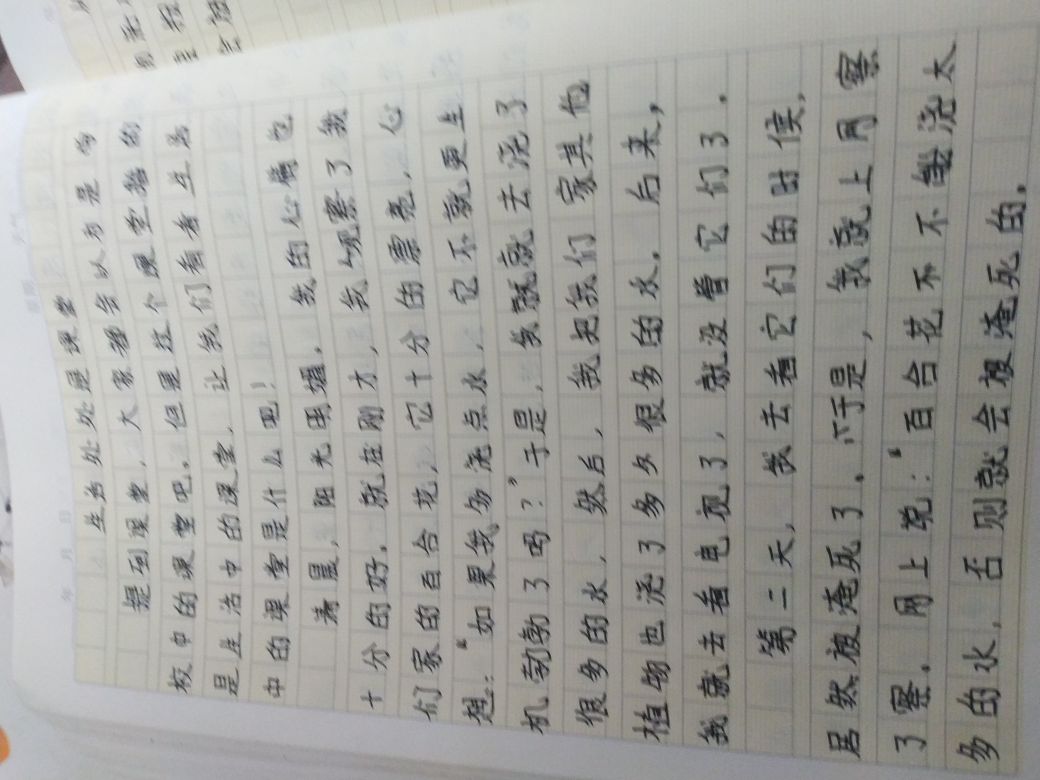 生活处处是课堂
提到课堂，大家都会以为是学
校中的课堂吧。但是这个课堂指的
是生活中的课堂，让我们看看生活
中的课堂是什么吧！
清晨，阳光明媚。我的心情也
十分的好。就在刚才，我观察了我
们家的百合花，它十分的漂亮，心
想：“如果我多浇点水，它不就更生
机勃勃了吗？”于是，我就就去浇了
很多的水，然后，我把我们家其他
植物也浇了多多很多的水。后来，
我就去看电视了，就没管它们了。
第二天，我去看它们的时候，
居然被淹死了。于是，我就上网察
了察。网上说：“百台花不不能浇太
多的水，否则就会被淹死的。